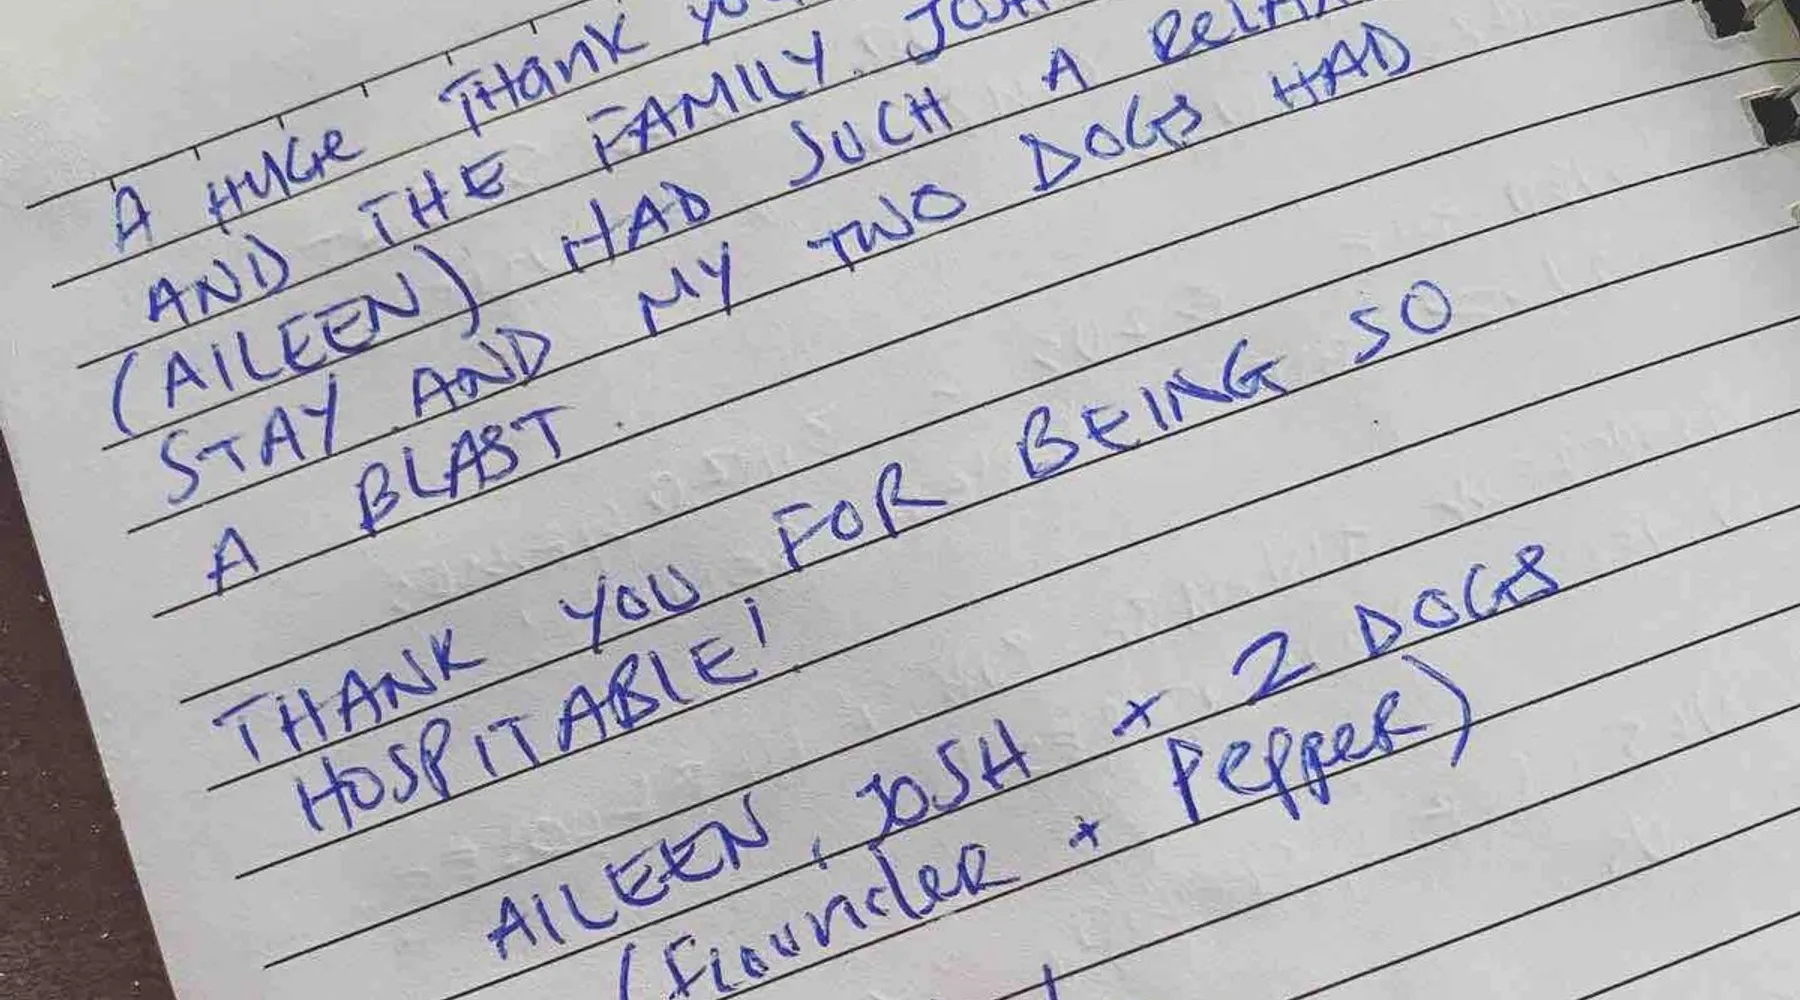 A HUGE THANK YOU
AND THE FAMILY. JOSH
(AILEEN) HAD SUCH A
STAY AND MY TWO DOGS HAD
A BLAST.
THANK YOU FOR BEING SO
HOSPITABLE!
AILEEN, JOSH + 2 DOGS
(Flounder + Pepper)